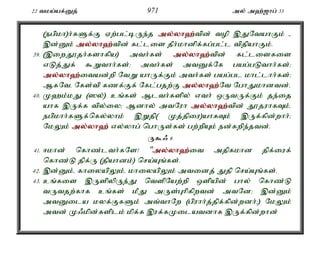 22 வமய்யக்னுத் 971 அல் அஹ்ஜாப் 33
(நபிமா)ர்களுக்கு ஏற்பட்டிருந்த அல்லாஹ்வின் வழி இதுவேயாகும் -
இன்னும் அல்லாஹ்வின் கட்டளை தீர்மானிக்கப்பட்ட விதியாகும்.
39. (இறைதூதர்களாகிய) அவர்கள் அல்லாஹ்வின் கட்டளைகளை
எடுத்துக் கூறுவார்கள்; அவர்கள் அவனுக்கே பயப்படுவார்கள்;
அல்லாஹ்வையன்றி வேறு யாருக்கும் அவர்கள் பயப்பட மாட்டார்கள்;
ஆகவே, கேள்வி கணக்குக் கேட்பதற்கு அல்லாஹ்வே போதுமானவன்.
40. முஹம்மது (ஸல்) உங்கள் ஆடவர்களில் எவர் ஒருவருக்கும் தந்தை
யாக இருக்க வில்லை; ஆனால் அவரோ அல்லாஹ்வின் தூதராகவும்,
நபிமார்களுக்கெல்லாம் இறுதி( முத்திரை)யாகவும் இருக்கின்றார்;
மேலும் அல்லாஹ் எல்லாப் பொருள்கள் பற்றியும் நன்கறிந்தவன்.
ருகூஃ 6
41. ஈமான் கொண்டவர்களே! அல்லாஹ்வை அதிகமான திக்ரைக்
கொண்டு திக்ரு (தியானம்) செய்யுங்கள்.
42. இன்னும், காலையிலும், மாலையிலும் அவனைத் துதி செய்யுங்கள்.
43. உங்களை இருளிலிருந்து வெளியேற்றி ஒளியின் பால் கொண்டு
வருவதற்காக உங்கள் மீது அருள்புரிகிறவன் அவனே; இன்னும்
அவனுடைய மலக்குகளும் அவ்வாறே (பிரார்த்திக்கின்றனர்;) மேலும்
அவன் முஃமின்களிடம் மிக்க இரக்கமுடையவனாக இருக்கின்றான்